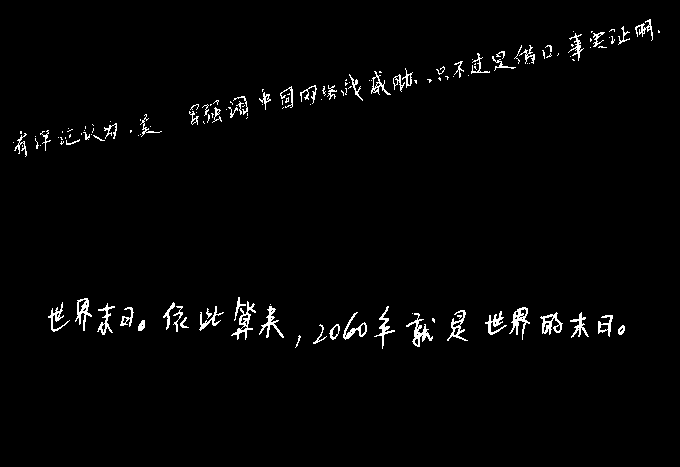 有评论认为,美 强调中国网络战威胁,只不过是借口.事实证明.
世界末日。依此算来,2060年就是世界的末日。